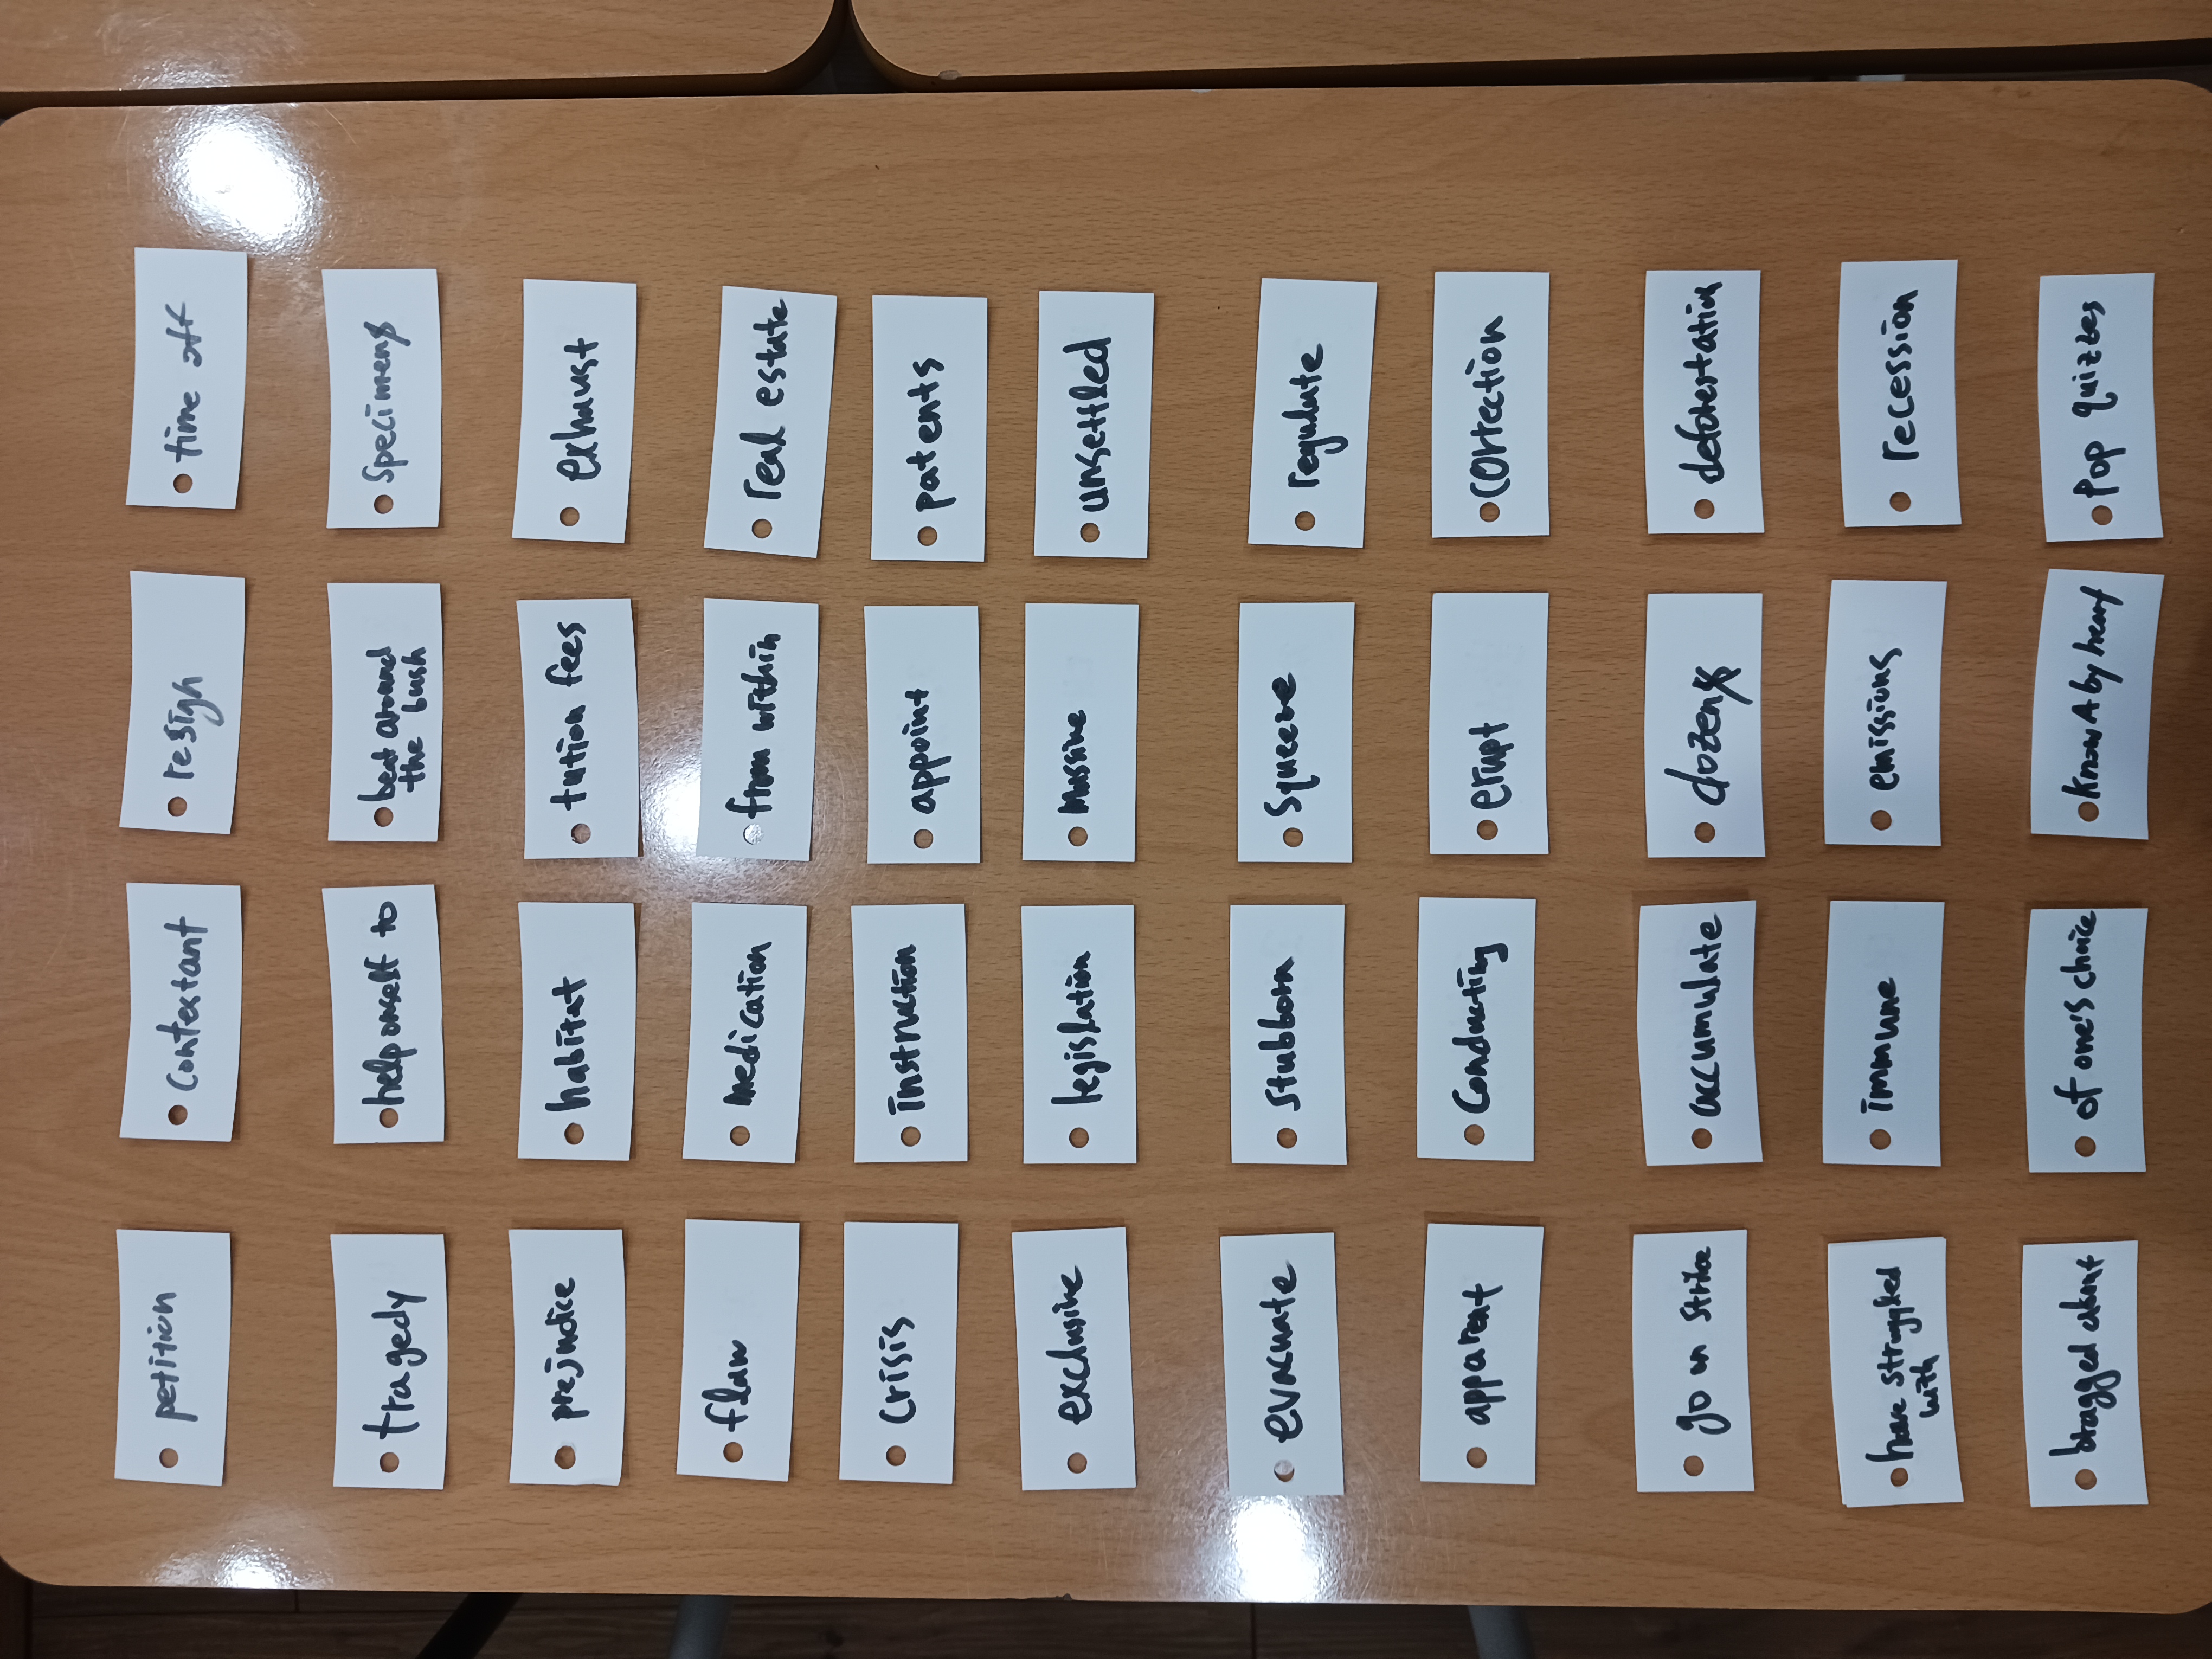 petition
contestant
resign
time off
tragedy
help onself to
beat around
the bush
specimen
prejudice
habitat
tution fees
exhaust
flaw
medication
from within
real estate
crisis
instruction
appoint
patents
exclusive
legislation
massive
unsettled
evacuate
stubborn
squeeze
regulate
apparent
Conducting
erupt
correction
go on strike
accumulate
dozen
deforestation
have struggled
with
immune
emissions
recession
bragged about
of one's choice
know A by heart
Pop quizzes